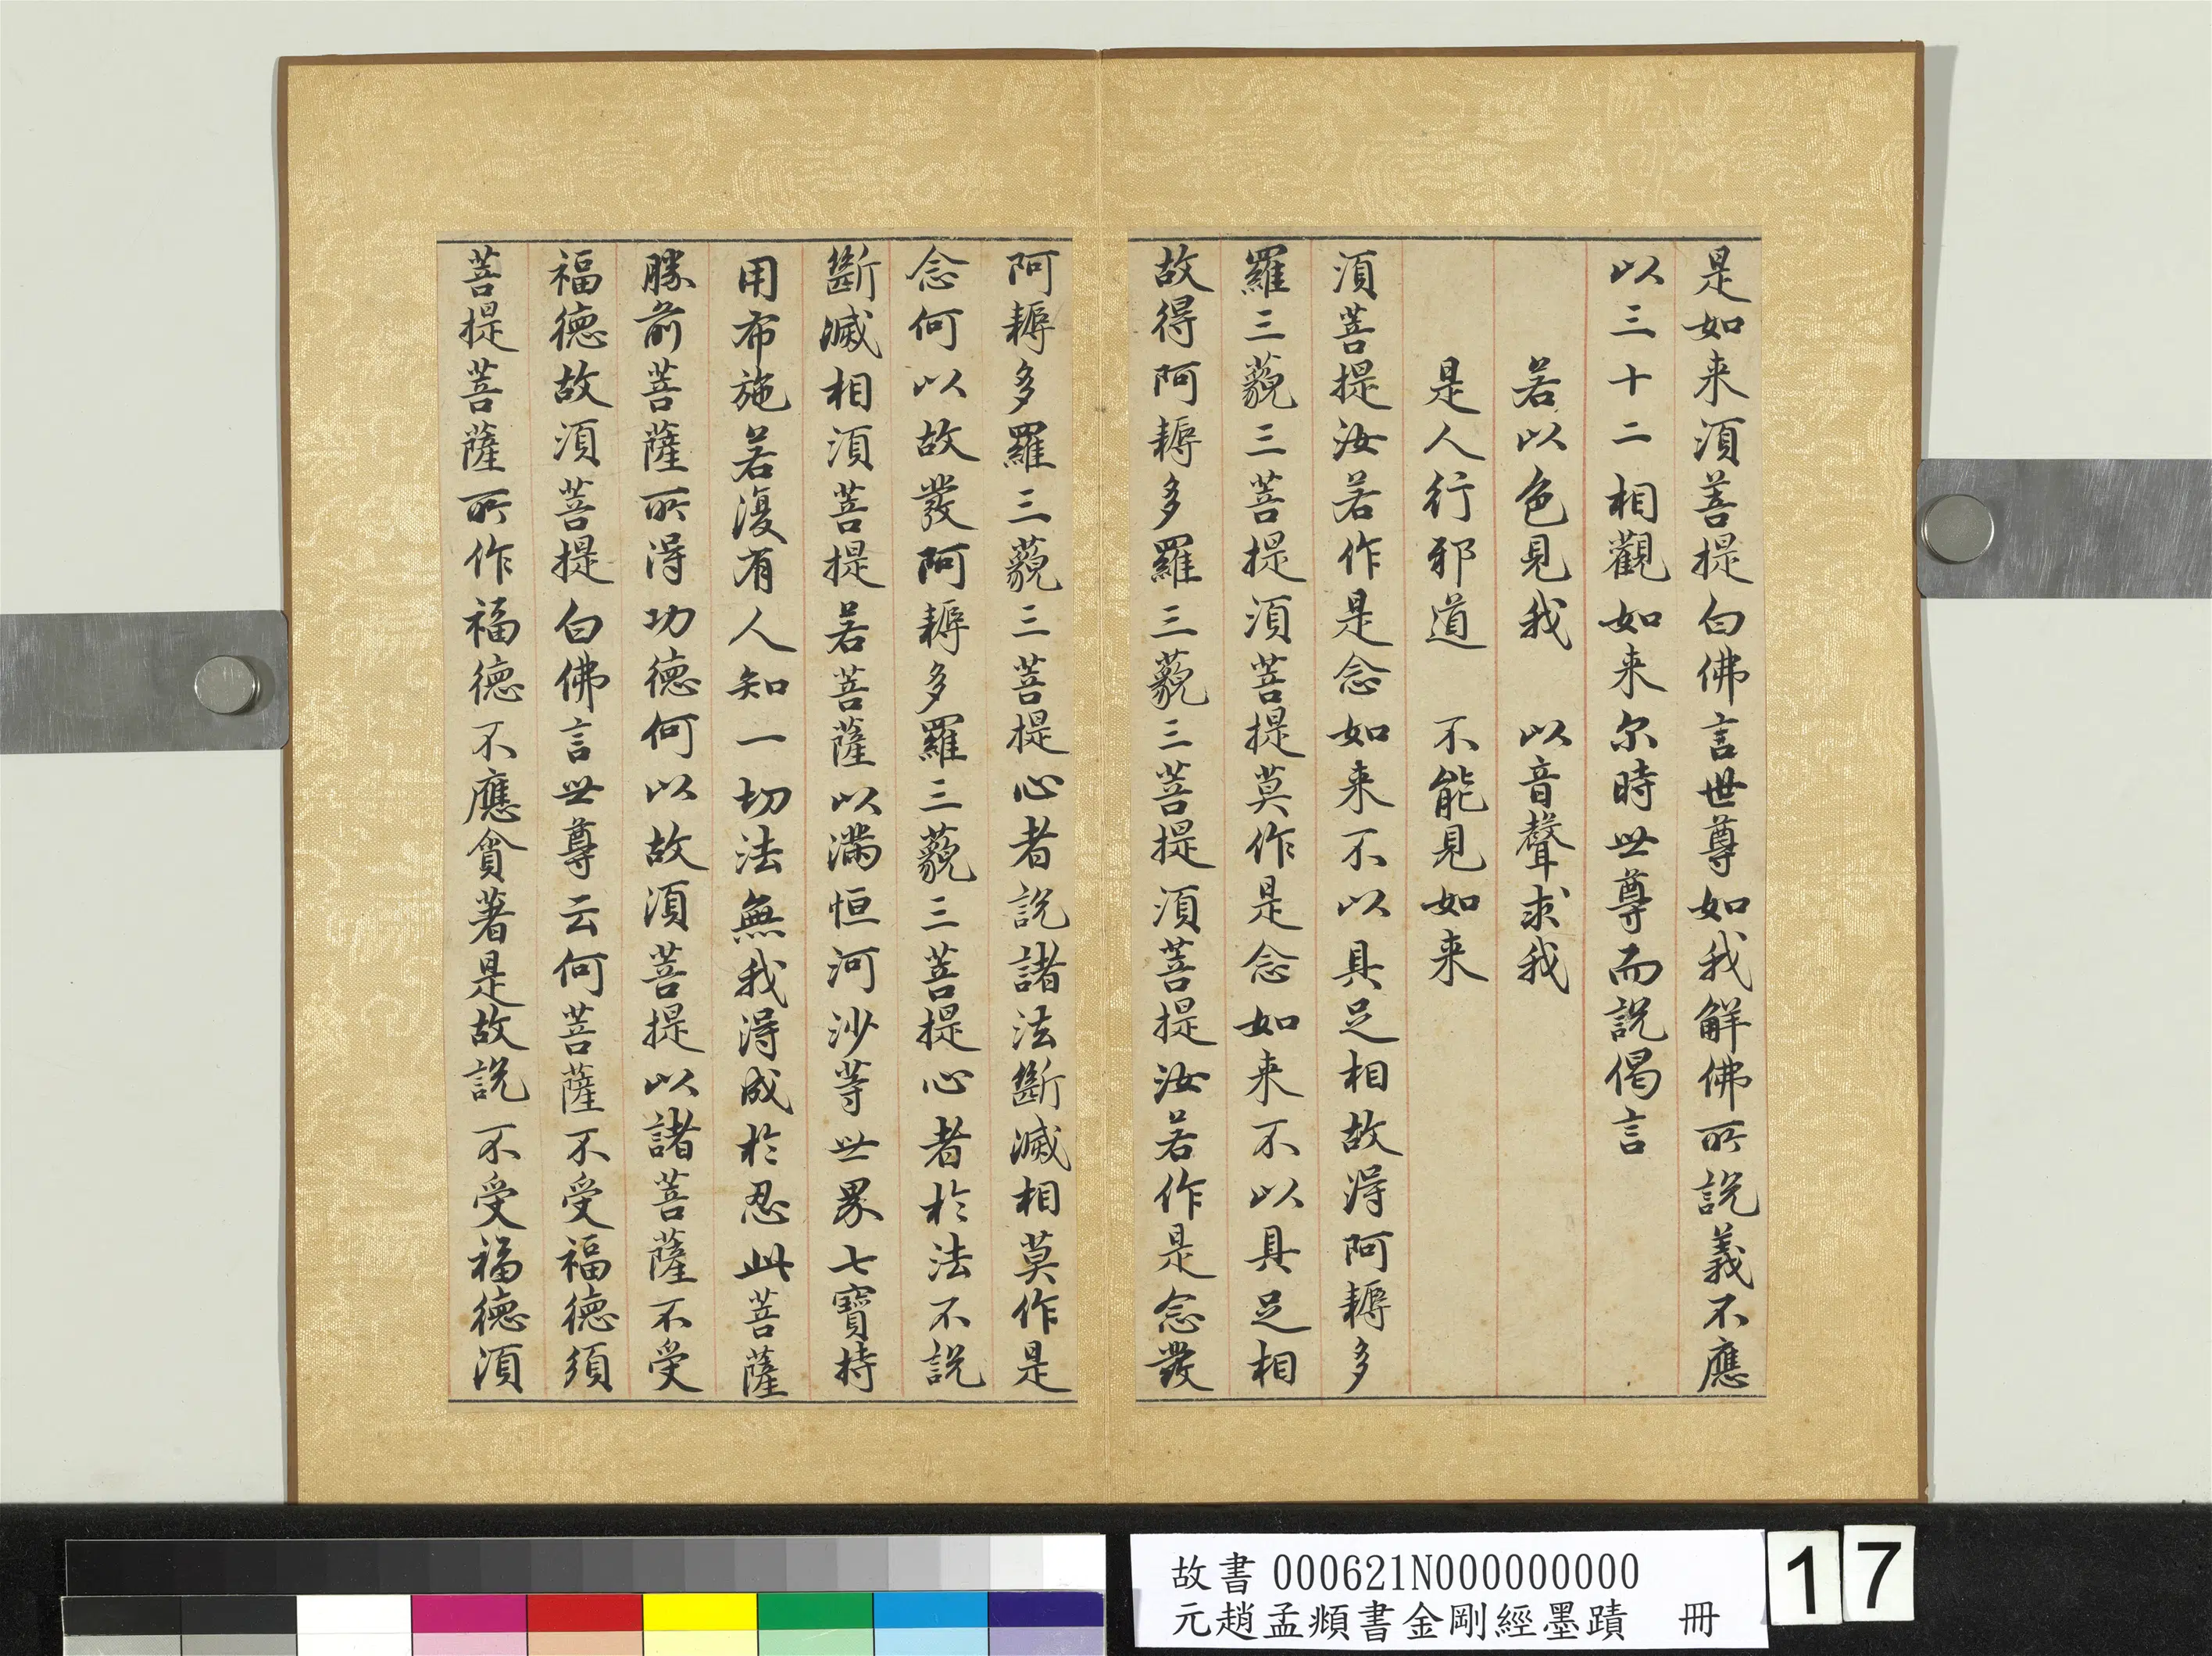 是如来須菩提白佛言世尊如我解佛所說義不應
以三十二相觀如来尔時世尊而說偈言
若以色見我　以音聲求我
是人行邪道　不能見如来
須菩提汝若作是念如来不以具足相故得阿耨多
羅三藐三菩提須菩提莫作是念如来不以具足相
故得阿耨多羅三藐三菩提須菩提汝若作是念發
阿耨多羅三藐三菩提心者說諸法斷滅相莫作是
念何以故發阿耨多羅三藐三菩提心者於法不說
斷滅相須菩提若菩薩以滿恒河沙等世界七寶持
用布施若復有人知一切法無我得成於忍此菩薩
勝前菩薩所得功德何以故須菩提以諸菩薩不受
福德故須菩提白佛言世尊云何菩薩不受福德須
菩提菩薩所作福德不應貪著是故說不受福德須
故書 000621N000000000
元趙孟頫書金剛經墨蹟　冊
17